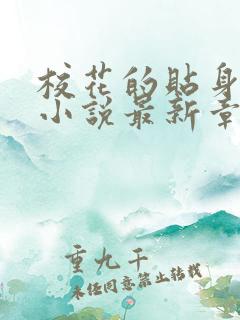 校花的贴身
小说最新章
重九千
未经同意禁止转载